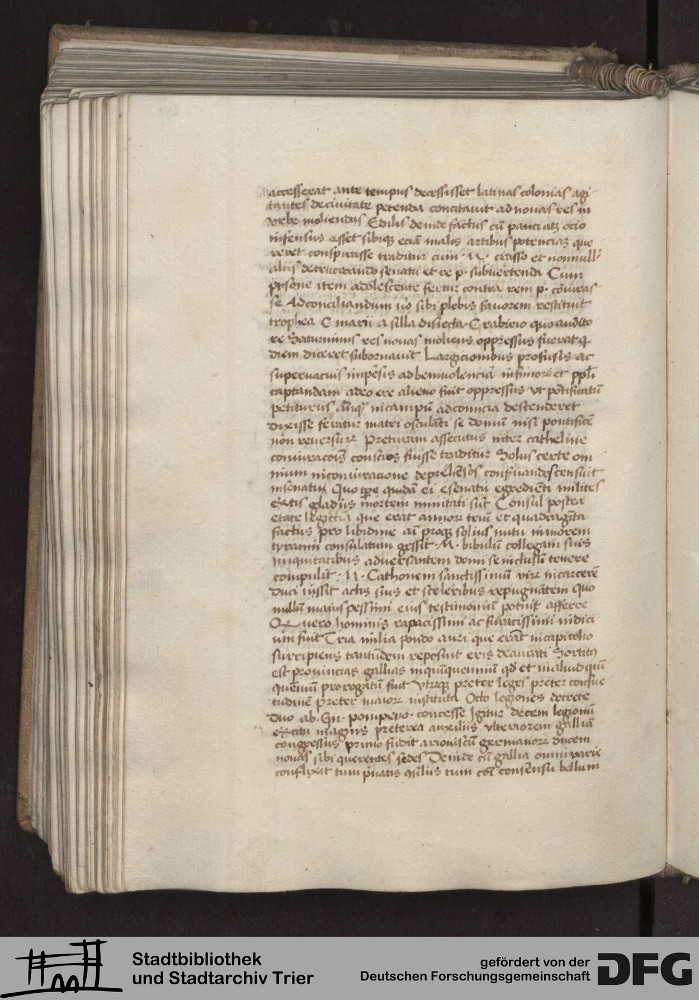 accesserat ante tempus decessisset latinas colonias agi-
tantes de civitate petenda concitavit ad novas res in
vrbe moliendas Edilis deinde factus cū pauci atꝫ ocio
infensus esset sibiqꝫ eciā malis artibus potenciaꝫ que
reret conspirasse traditur cum · M · crasso et nonnull'
aliis de trucitando senatu et re p. subvertenda Cum
pisone item adolescente fertur contra rem p. coniuras
se Ad conciliandum v͞o sibi plebis favorem restituit
trophea C marii a silla disiecta · C rabirio quo audito
re Saturninus res novas moliens oppressus fuerat q
diem diceret subornavit Largicionibus profusis ac
supervacuis impēsis ad benivolenciā infimorꝫ et pp̄li
captandam adeo ere alieno fuit oppressus vt pōtificatū
petiturus in campū ad comicia descenderet
dixisse feratur matri osculāti se domū nisi pontificē
non reversurꝫ Preturam assecutus inter catheline
coniuracōis conscios fuisse traditur Solus certe om
nium in coniuracione deprehēsos conservandos censuit
in senatu Quo tp̄re quidā ei e senatu egrediēti milites
extis gladiis mortem minitati sūt Consul postea
etate legittia que erat annorꝫ triū et quadragīta
factus pro libidine ac proqꝫ solius nutu in morem
tyranni consulatum gessit · M · bibulū collegam suis
iniquitatibus adversantem domi se inclusū tenere
compulit · M · Cathonem sanctissimū virꝫ in carcerē
duci iussit actis suis et sceleribus repugnātem Quo
nullū maius pessimi eius testimoniū potuit afferre
Qr vero hominis rapacissimi ac furacissimi indici
um fuit Tria milia pondo auri que erāt in capitolio
surripiens tantūdem reposuit eris deaurati Sortitꝰ
est provincias gallias in quinquennium qd et in aliud quī
quēnium prorogatū fuit vtrūqꝫ preter leges preter consue
tudinē preter maiorꝫ instituta Octo legiones decrete
duo ab · Gn · pompeyo · concesse Igitur decem legionū
exercitu magnis preterea auxiliis vlteriorem galliā
congressus primo fudit ariovistū germanorꝫ ducem
novas sibi querentes sedes Deinde cū gallia omni varie
conflixit tum privatis cōsiliis tum cōi consensu bellum
Stadtbibliothek
und Stadtarchiv Trier
gefördert von der
Deutschen Forschungsgemeinschaft
DFG